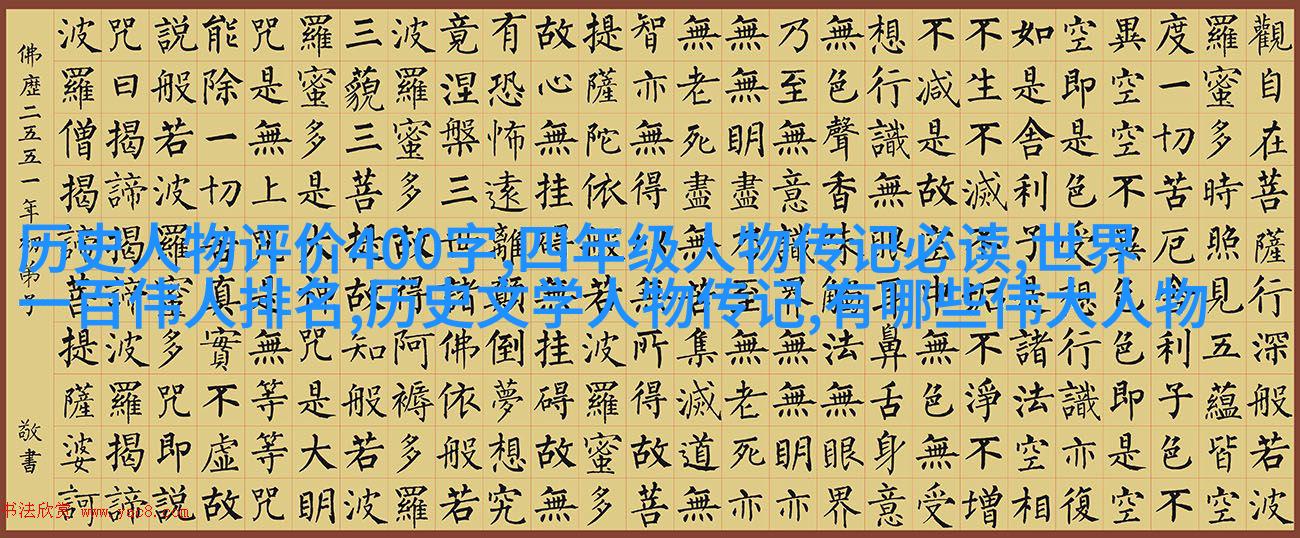 觀自在菩薩行深般若波
羅蜜多時照見五蘊皆空
度一切苦厄利子色不
異空空不色色即是空
空即是色行識亦復
如是舍利子是諸法空相
不生不滅不垢不淨不增
不減是故中無色無受
想行識無眼耳鼻舌身意
無色聲香味觸法無眼界
乃至無意識無無明亦
無無明盡無老死亦
無老死盡無集滅道無
智亦無得無所得故菩
提薩陀依般若波羅蜜多
故心無挂礙無挂礙故無
有恐怖遠離顛倒夢想究
竟涅槃三世諸佛依般若
波羅蜜多故得阿褥多羅
三藐三菩故知般若波
羅蜜多是大咒是大明
咒是無上咒是無等等咒
能除一切苦真實不虛故
說般若波羅蜜多咒即說
咒曰揭諦揭諦波羅揭諦
波羅僧揭諦菩提薩婆訶
佛歷二五五一年 弟子 敬書
历史人物评价400字,四年级人物传记必读,世界
一百伟人排名,历史文学人物传记,有哪些伟大人物
书法欣赏 www.yac8.com